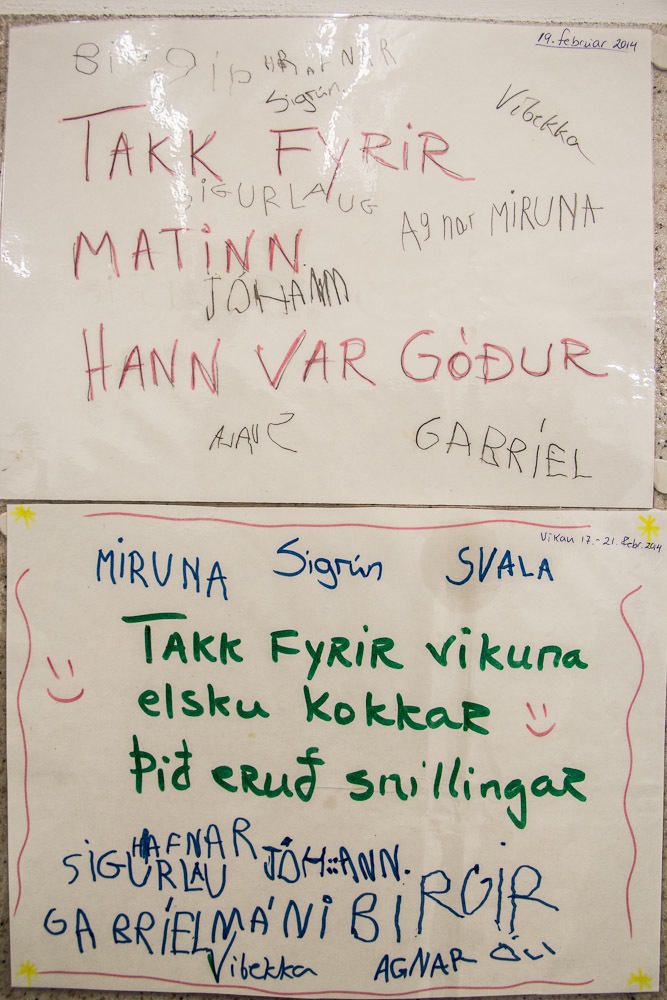 19. februar 2014
Sigrún
Vibekka
TAKK FYRIR
SIGURLAUG
Agnar MIRUNA
MATINN
JÓHANN
HANN VAR GÓÐUR
GABRÍEL
Vikan 17.-21. febr. 2014
MIRUNA Sigrún SVALA
TAKK FYRIR vikuna
elsku kokkar
Þið eruð snillingar
HAFNAR
SIGURLAU JÓHANN.
GABRÍELMÁNI BIRGIR
Vibekka AGNAR ÓLI